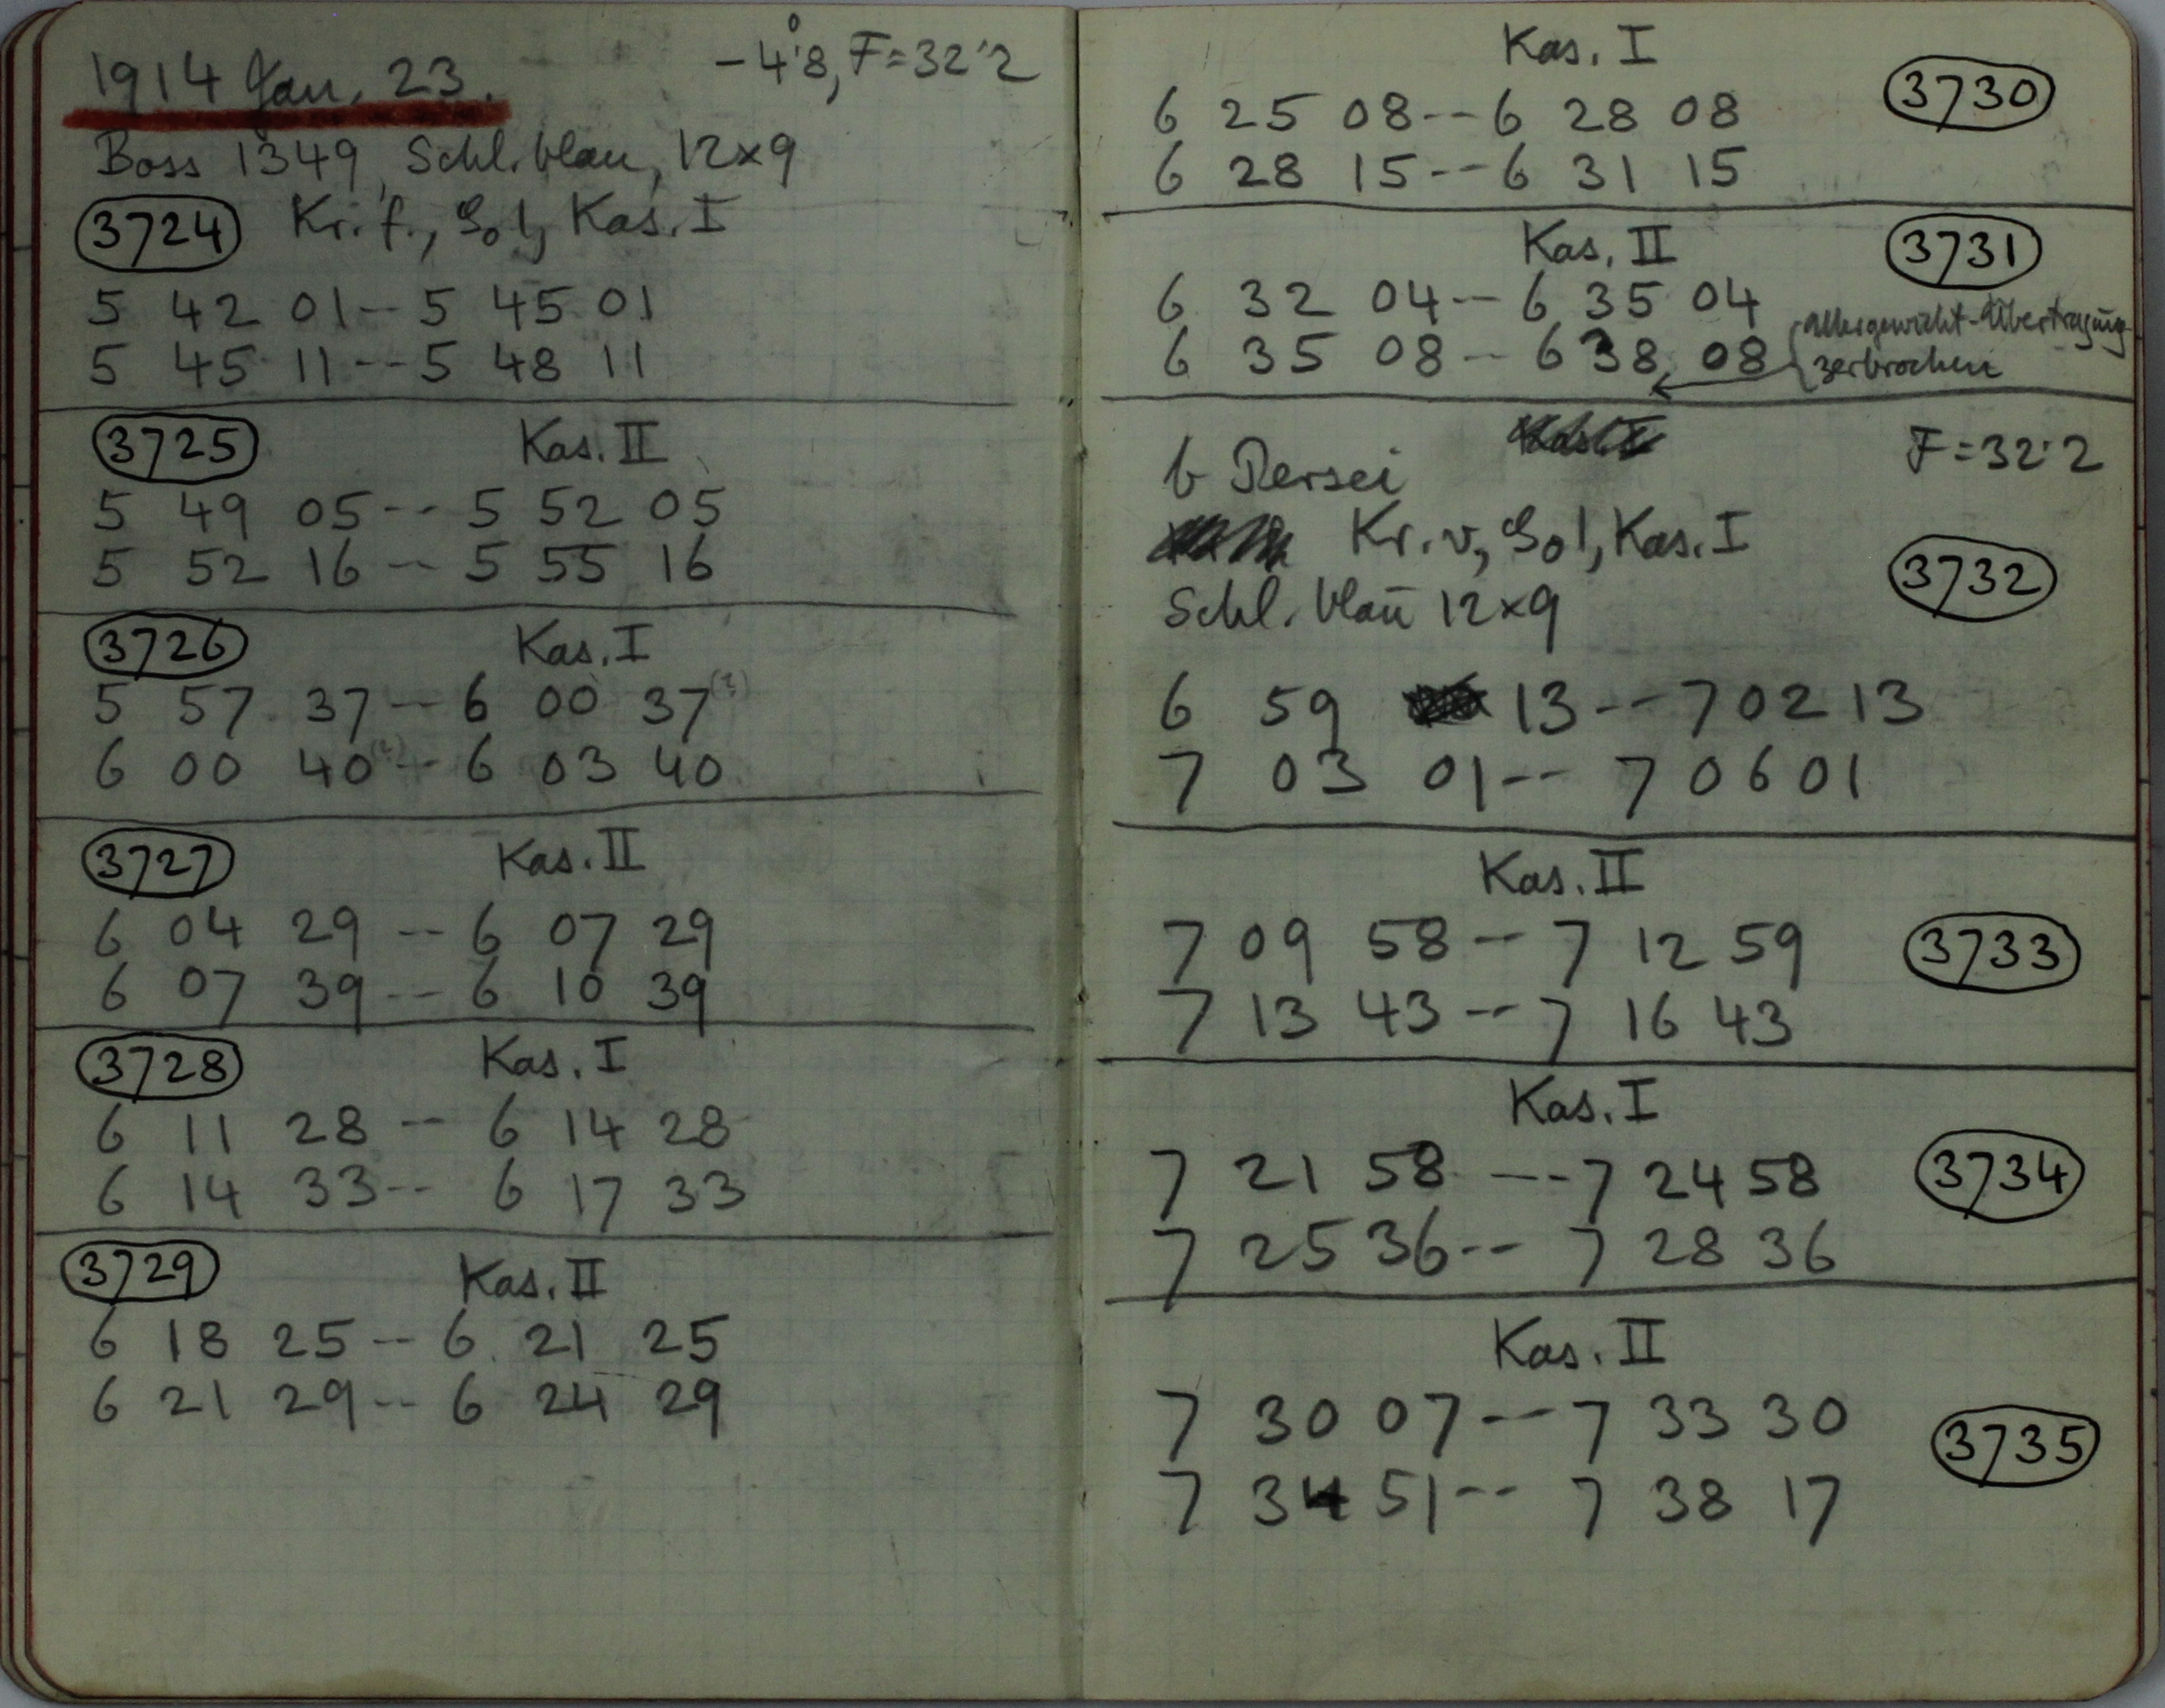 1914 Jan. 23. -4°.8, F=32.2
Boss 1349, Schl. blau, 12×9
3724 Kr. f., So 1, Kas. I
5 42 01 -- 5 45 01
5 45 11 -- 5 48 11
3725 Kas. II
5 49 05 -- 5 52 05
5 52 16 -- 5 55 16
3726 Kas. I
5 57 37 -- 6 00 37 (?)
6 00 40 (?) -- 6 03 40
3727 Kas. II
6 04 29 -- 6 07 29
6 07 39 -- 6 10 39
3728 Kas. I
6 11 28 -- 6 14 28
6 14 33 -- 6 17 33
3729 Kas. II
6 18 25 -- 6 21 25
6 21 29 -- 6 24 29
Kas. I 3730
6 25 08 -- 6 28 08
6 28 15 -- 6 31 15
Kas. II 3731
6 32 04 -- 6 35 04
6 35 08 -- 6 38 08
-Übertragung
zerbrochen
b Persei F=32.2
Kr. v., So 1, Kas. I
Schl. blau 12×9 3732
6 59 13 -- 7 02 13
7 03 01 -- 7 06 01
Kas. II
7 09 58 -- 7 12 59 3733
7 13 43 -- 7 16 43
Kas. I
7 21 58 --- 7 24 58 3734
7 25 36 -- 7 28 36
Kas. II
7 30 07 -- 7 33 30 3735
7 34 51 -- 7 38 17